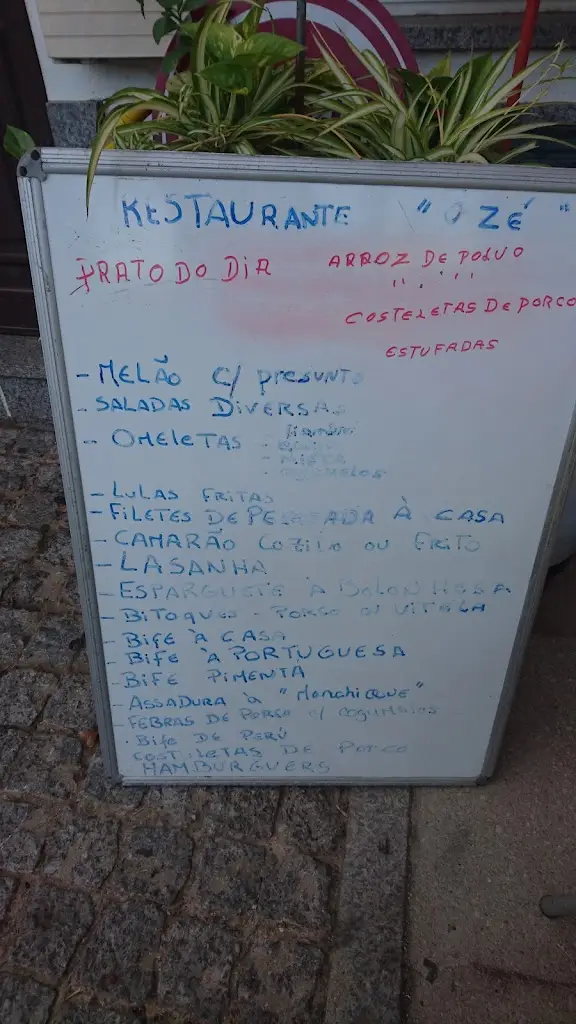 RESTAURANTE "O ZÉ"
PRATO DO DIA ARROZ DE POLVO
" . ' ' '
COSTELETAS DE PORCO
ESTUFADAS
- MELÃO C/ PRESUNTO
- SALADAS DIVERSAS
- OMELETAS - FIAMBRE
- MISTA
- COGUMELOS
- LULAS FRITAS
- FILETES DE PESCADA À CASA
- CAMARÃO COZIDO OU FRITO
- LASANHA
- ESPARGUETE À BOLONHESA
- BITOQUES - PORCO OU VITELA
- BIFE À CASA
- BIFE À PORTUGUESA
- BIFE PIMENTA
- ASSADURA À "Monchique"
- FEBRAS DE PORCO C/ COGUMELOS
- BIFE DE PERÚ
COSTELETAS DE PORCO
HAMBURGUERS